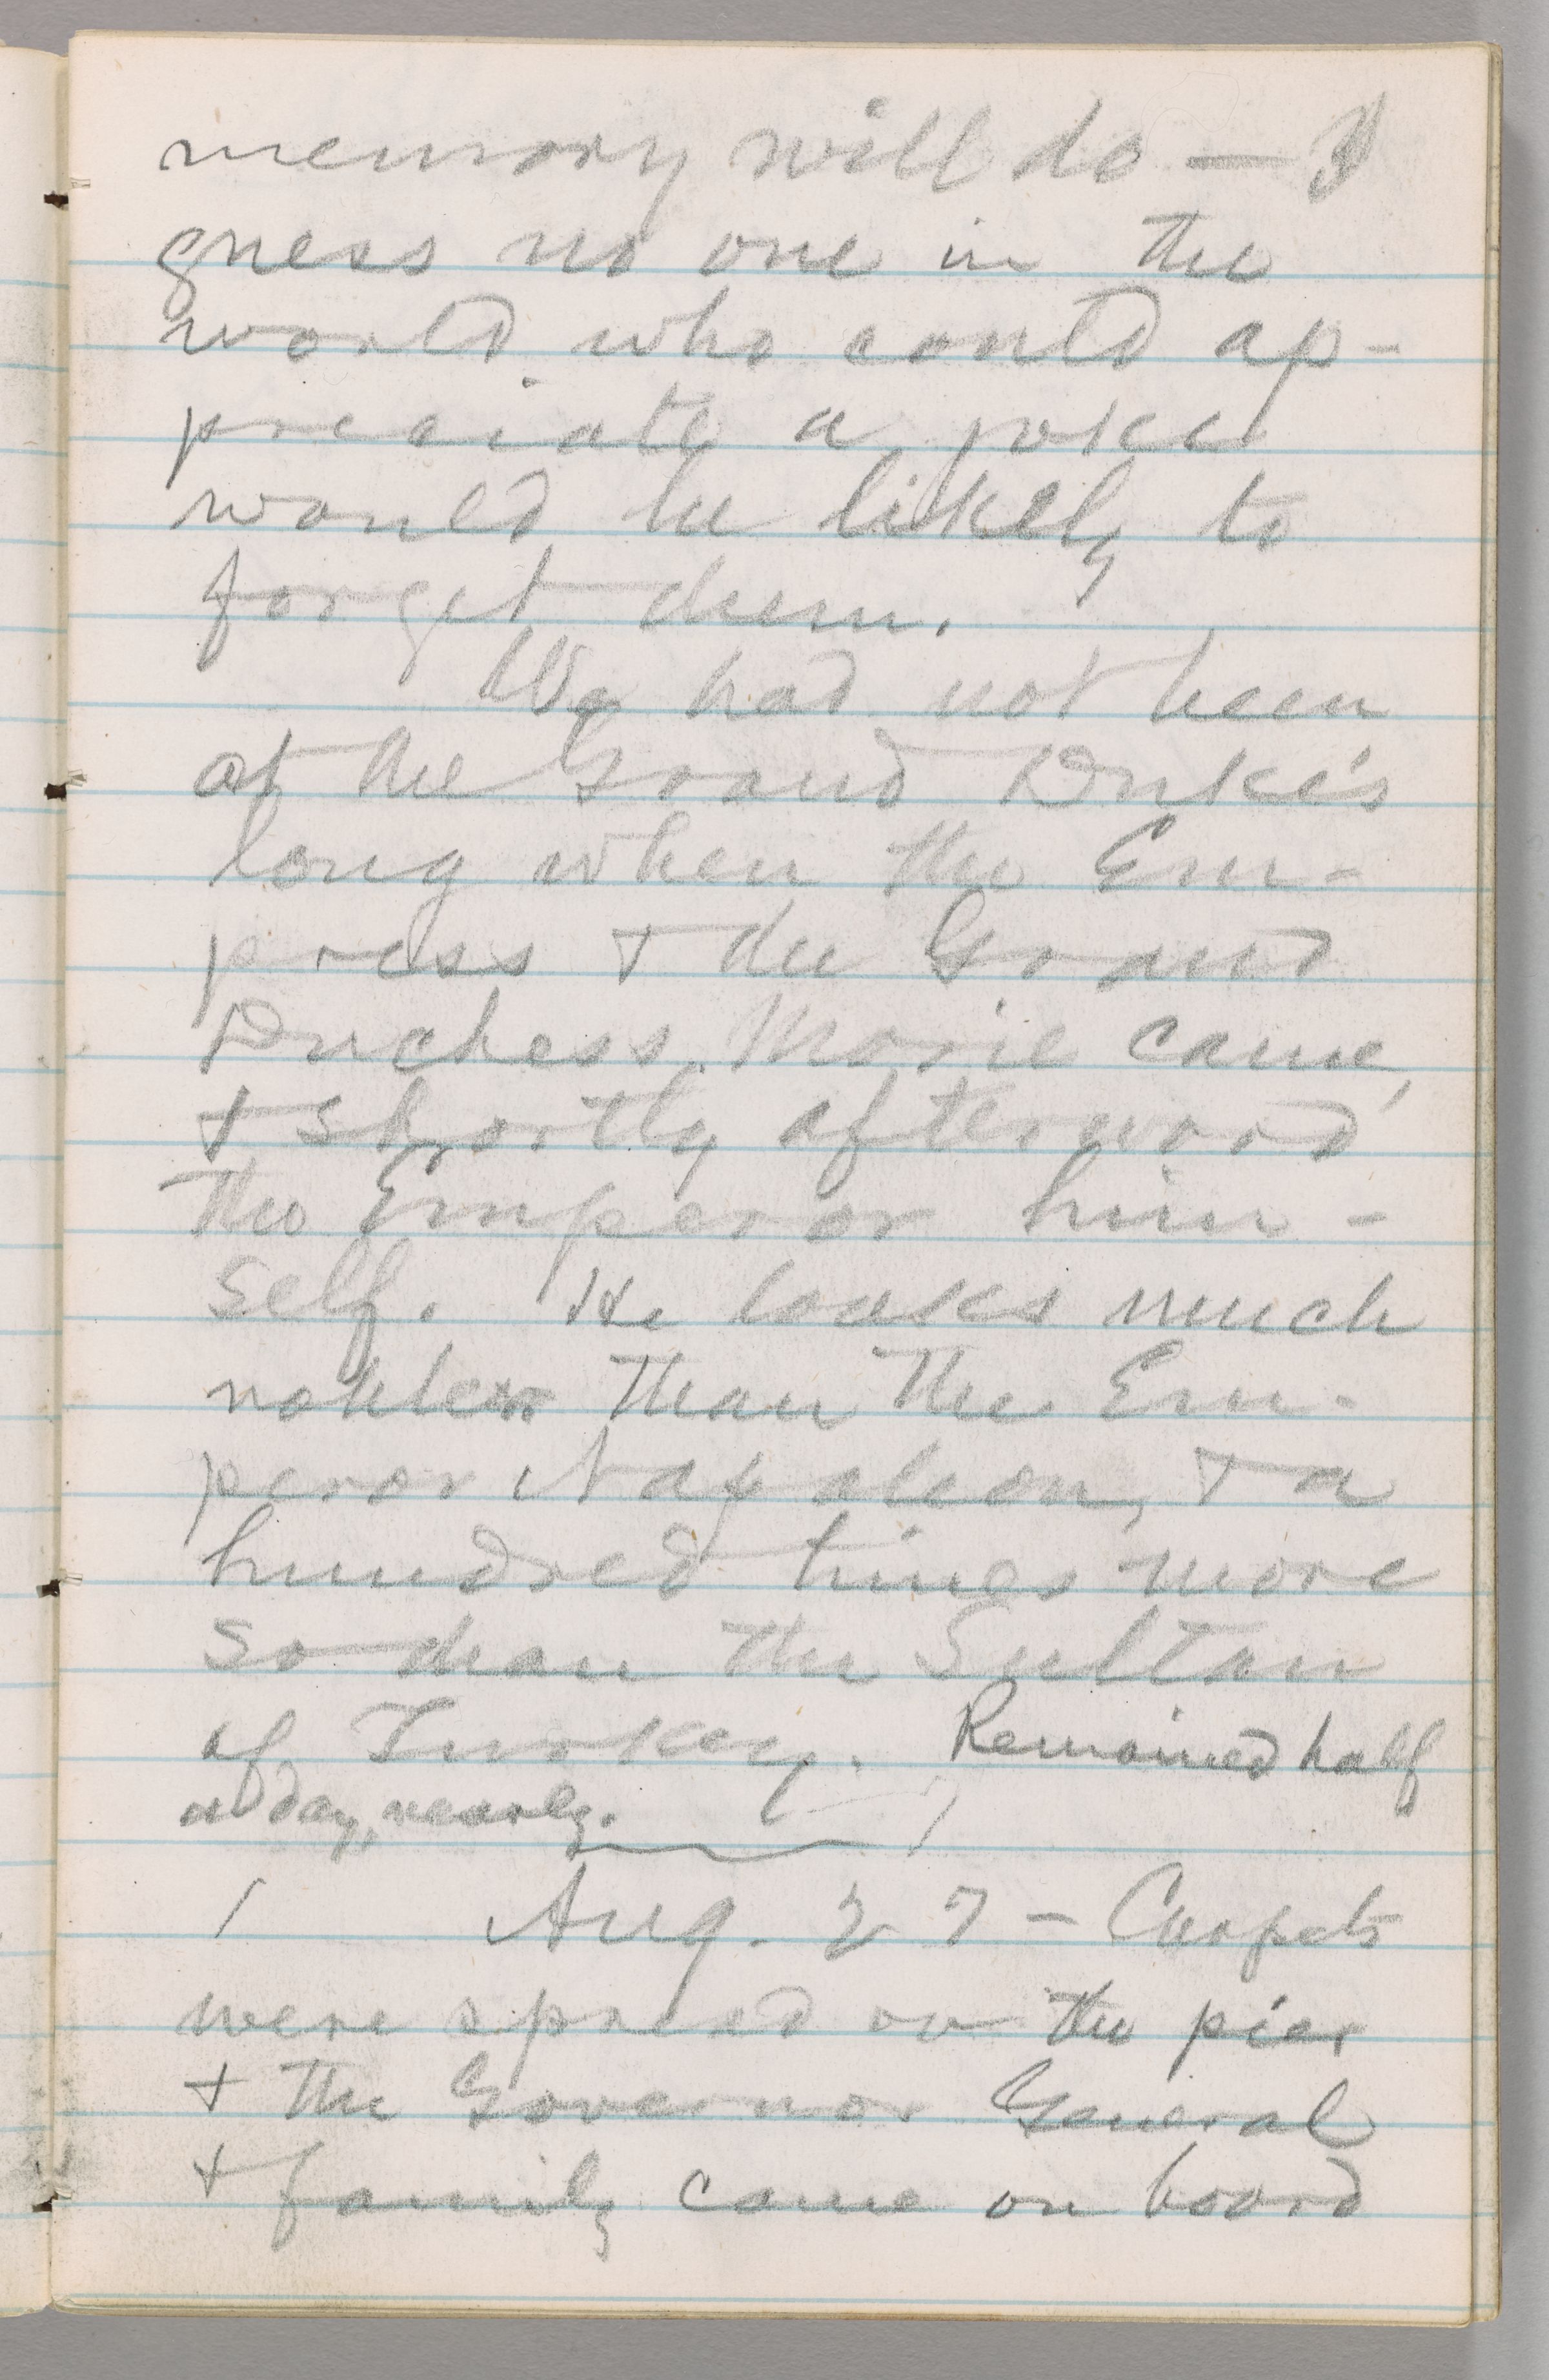 memory will do — I
guess no one in the
world who could ap-
preciate a joke
would be likely to
forget them.
We had not been
at the Grand Duke's
long when the Em-
press & the Grand
Duchess Marie came,
& shortly afterward
the Emperor him-
self. He looks much
nobler than the Em-
peror Napoleon, & a
hundred times more
so than the Sultan
of Turkey. Remained half
a day, nearly.
Aug. 27 — Carpets
were spread on the pier
& the Governor General
& family came on board